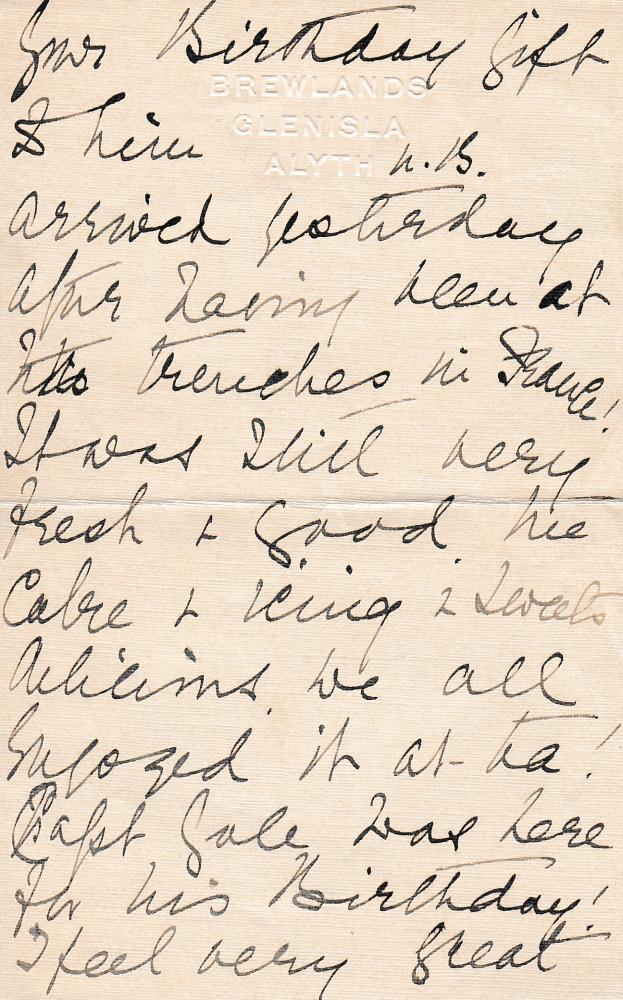 Your Birthday gift
BREWLANDS
GLENISLA
ALYTH N.B.
to him
arrived yesterday
after having been at
the trenches in France!
It was still very
fresh & good. the
Cake & icing & sweets
delicious. We all
enjoyed it at tea!
Capt Gole was here
for his Birthday!
I feel very great